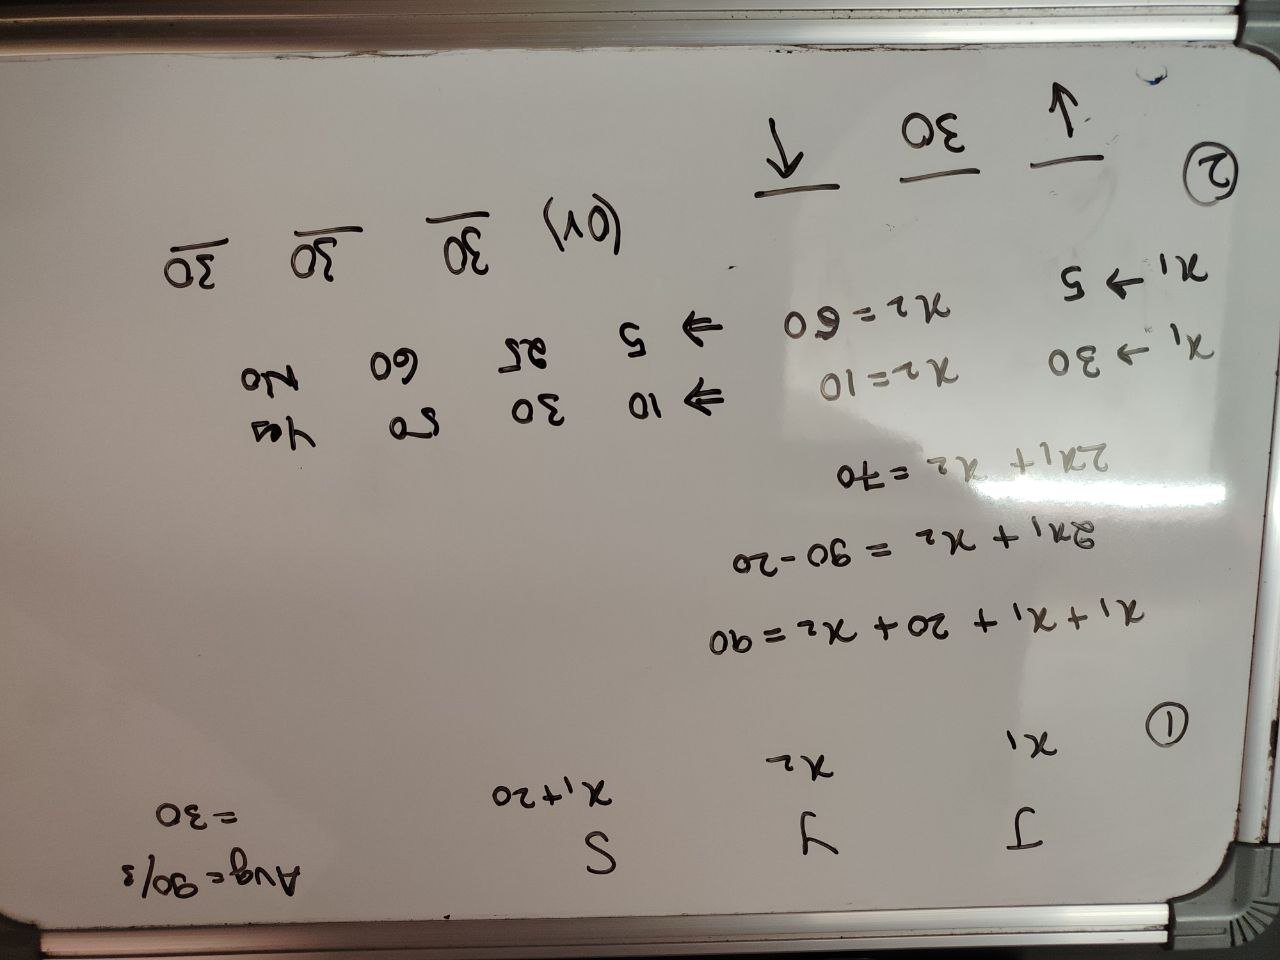 J Y S Avg = 90/3
① x₁ x₂ x₁+20 = 30
x₁ + x₁ + 20 + x₂ = 90
2x₁ + x₂ = 90 - 20
2x₁ + x₂ = 70
x₁ → 30 x₂ = 10 ⇒ 10 30 50 Yes
x₁ → 5 x₂ = 60 ⇒ 5 25 60 No
② ↓ 30 ↑ (or) 30 30 30